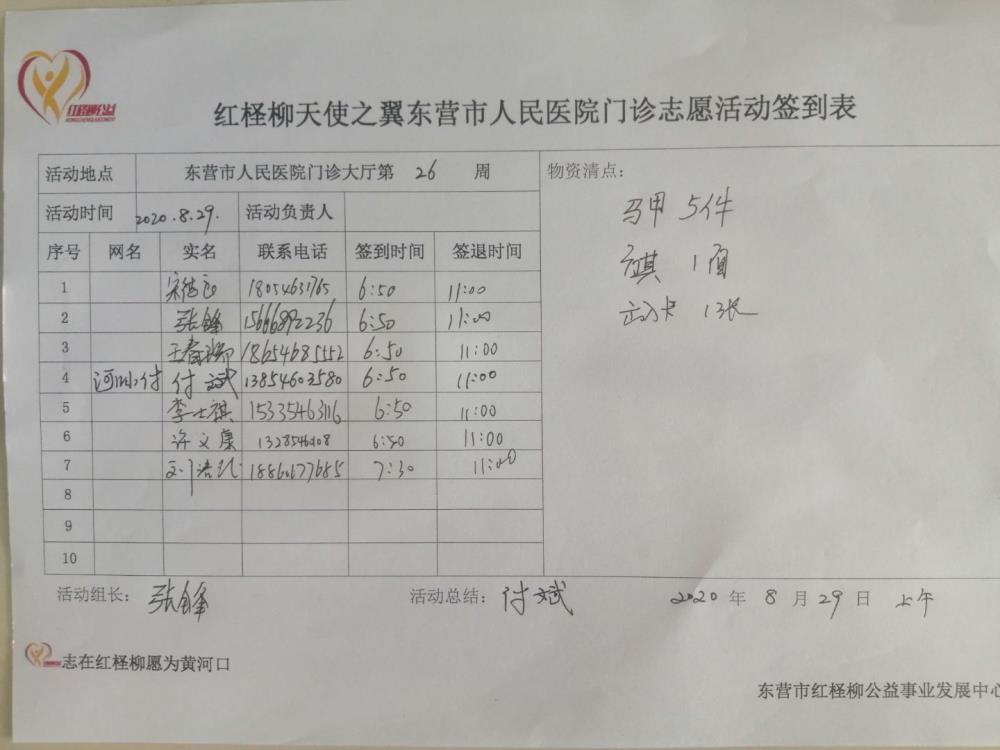 红柽柳公益
红柽柳天使之翼东营市人民医院门诊志愿活动签到表
活动地点 东营市人民医院门诊大厅第 26 周 物资清点：
活动时间 2020.8.29. 活动负责人
马甲 5件
旗 1面
序号 网名 实名 联系电话 签到时间 签退时间
1 18054631765 6:50 11:00
2 张锋 15666892236 6:50 11:00
3 王春瑞 18654685552 6:50 11:00
4 付斌 13854603580 6:50 11:00
5 李士祺 15335463116 6:50 11:00
6 许文康 6:50 11:00
7 18860677685 7:30 11:00
8
9
10
活动组长： 张锋 活动总结： 付斌 2020 年 8 月 29 日 上午
志在红柽柳愿为黄河口
东营市红柽柳公益事业发展中心